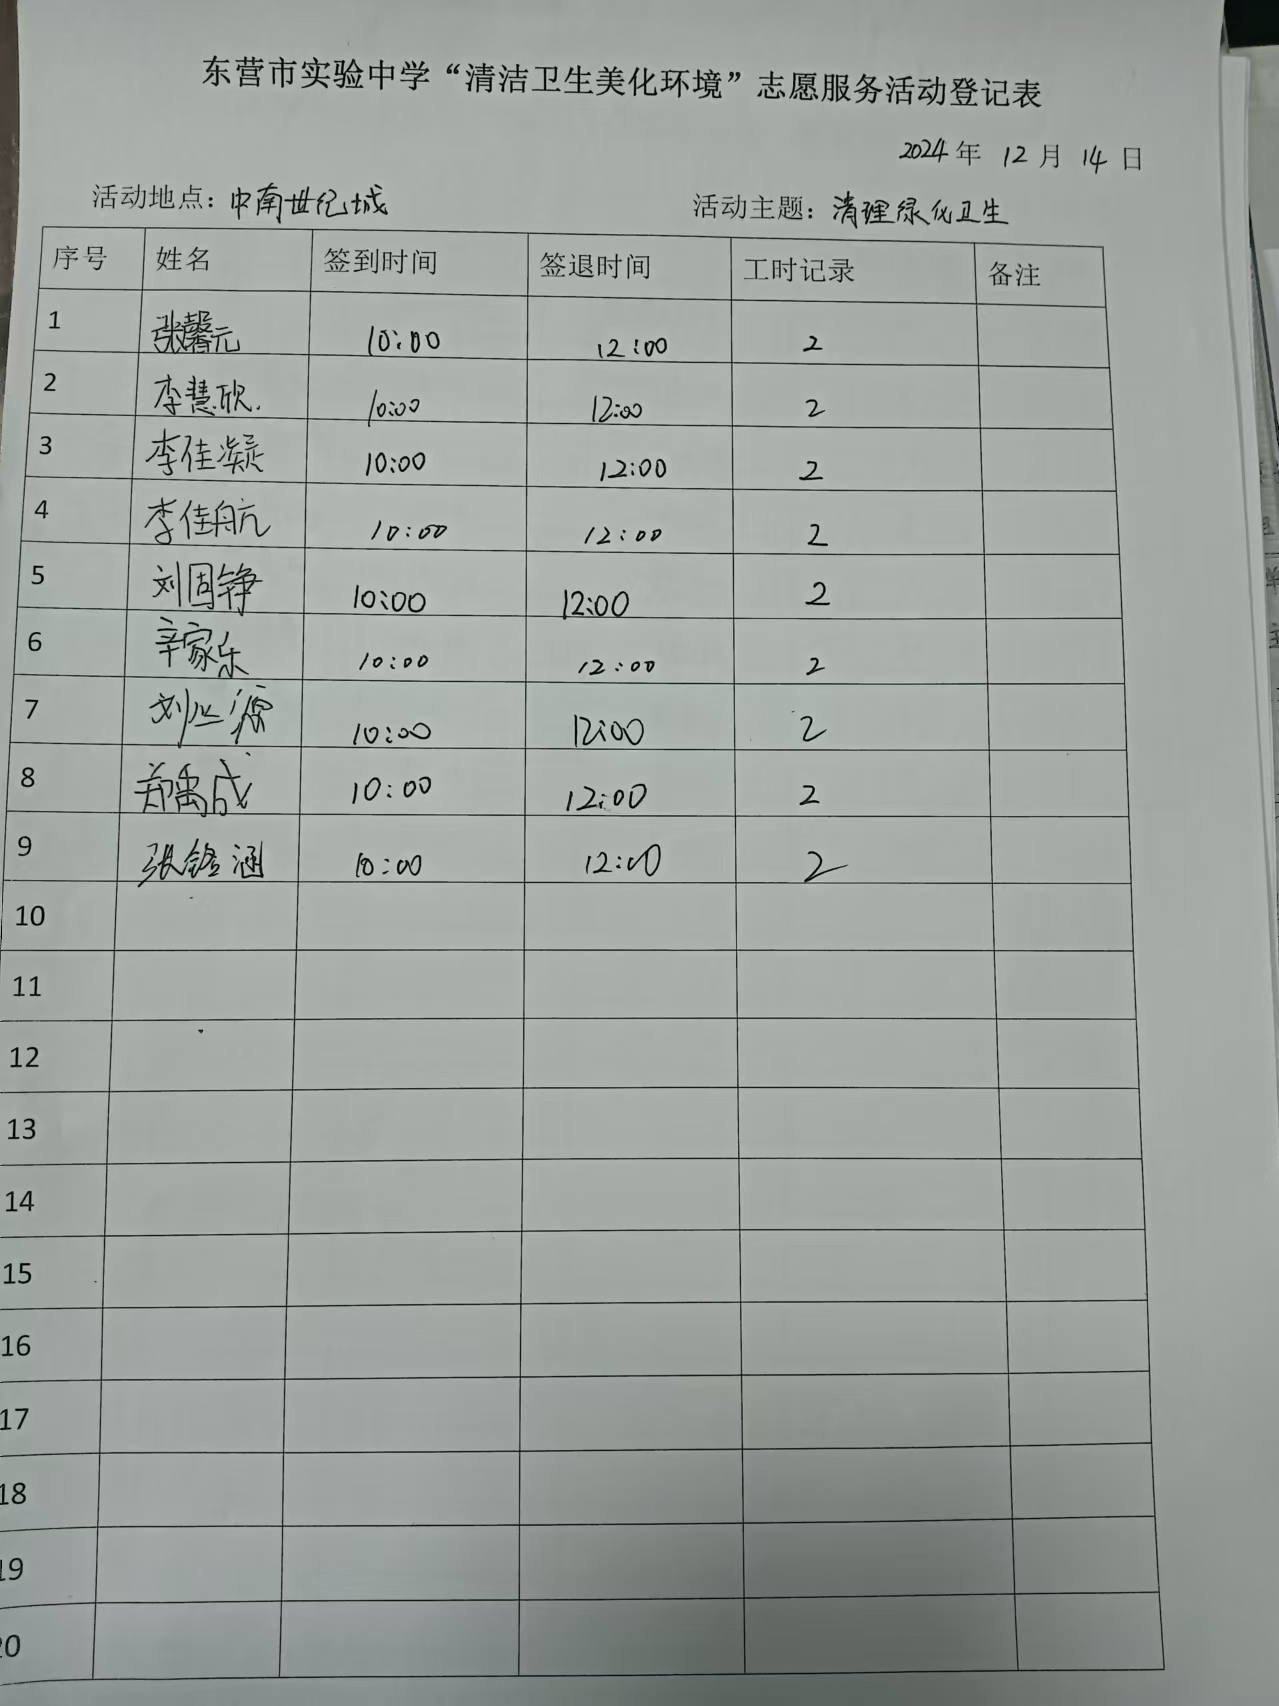 东营市实验中学“清洁卫生美化环境”志愿服务活动登记表
2024年 12月 14日
活动地点：中南世纪城 活动主题：清理绿化卫生
序号 姓名 签到时间 签退时间 工时记录 备注
1 张馨元 10:00 12:00 2
2 李慧欣 10:00 12:00 2
3 李佳凝 10:00 12:00 2
4 李佳航 10:00 12:00 2
5 刘国铮 10:00 12:00 2
6 辛家乐 10:00 12:00 2
7 刘 源 10:00 12:00 2
8 郑禹成 10:00 12:00 2
9 张铭涵 10:00 12:00 2
10
11
12
13
14
15
16
17
18
19
20